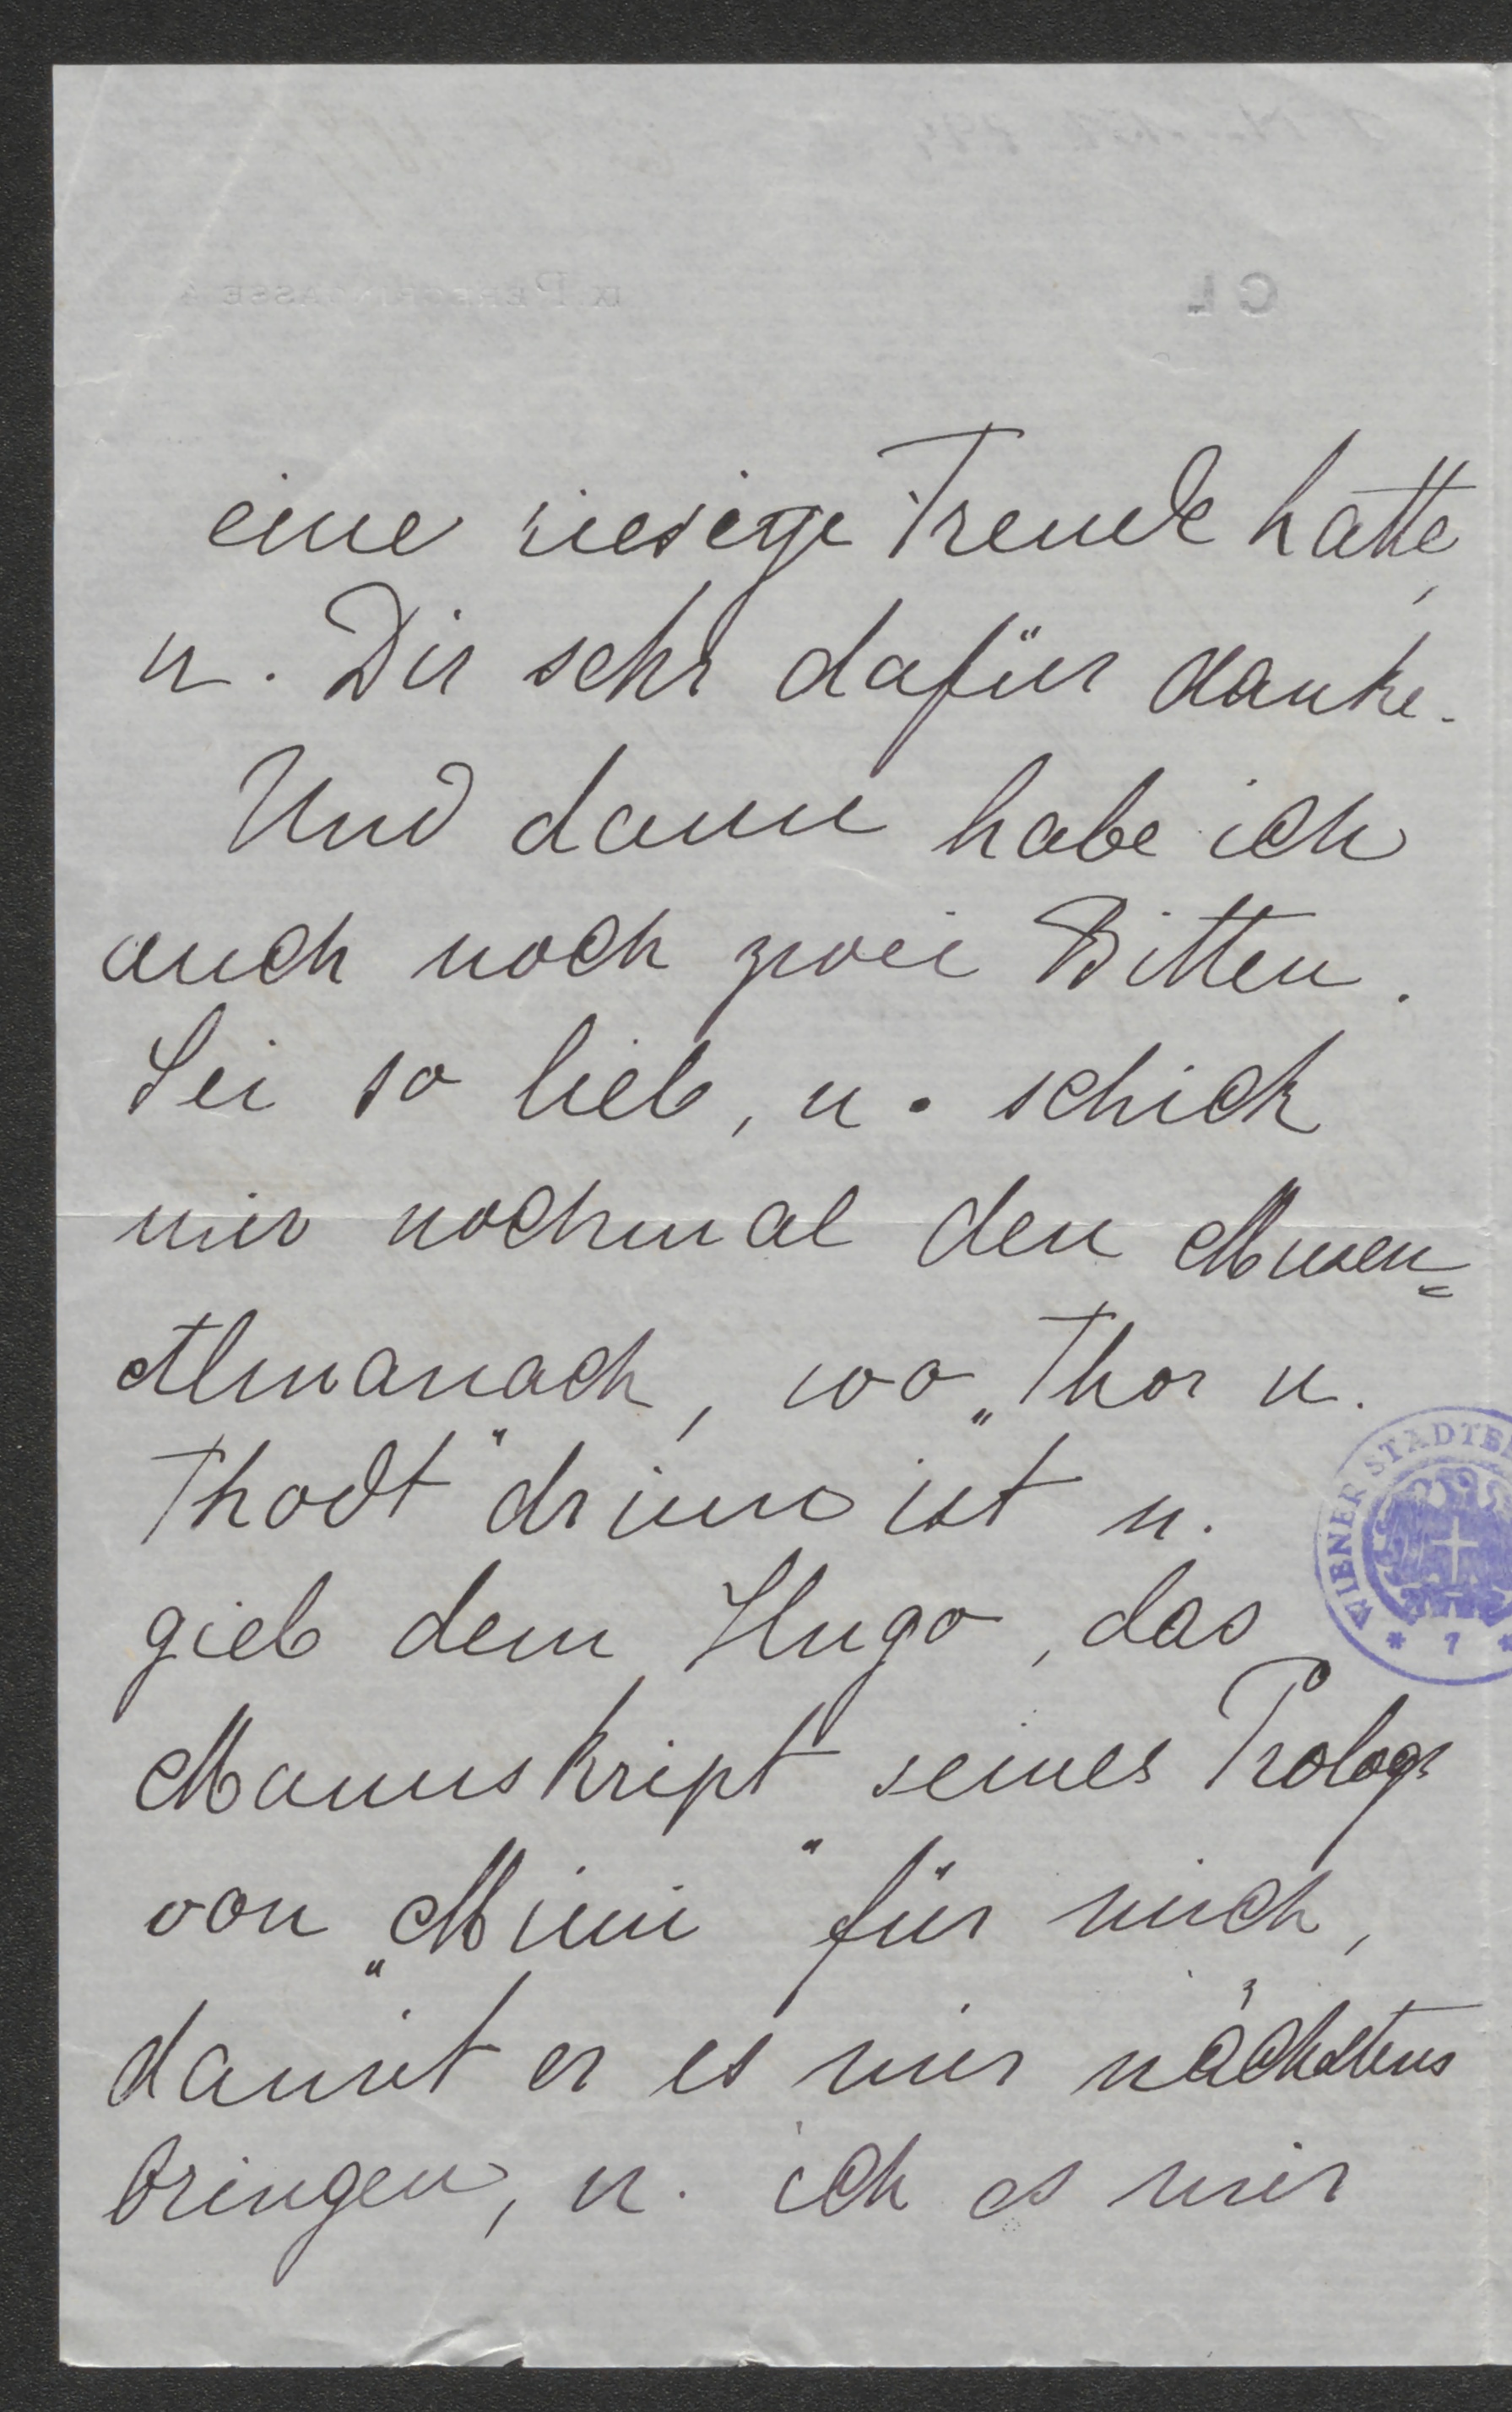 eine riesige Freude hatte,
u. Dir sehr dafür danke.
Und dann habe ich
auch noch zwei Bitten.
Sei so lieb, u. schick
mir nochmal den Musen=
Almanach, wo „Thor u.
Thodt" drinn ist u.
gieb dem Hugo, das
Manuskript seines Prologs
von „Mimi" für mich,
damit er es mir nächstens
bringen, u. ich es mir
WIENER STADTB
* 7 *
CL
IX. PEREGRINGASSE 4